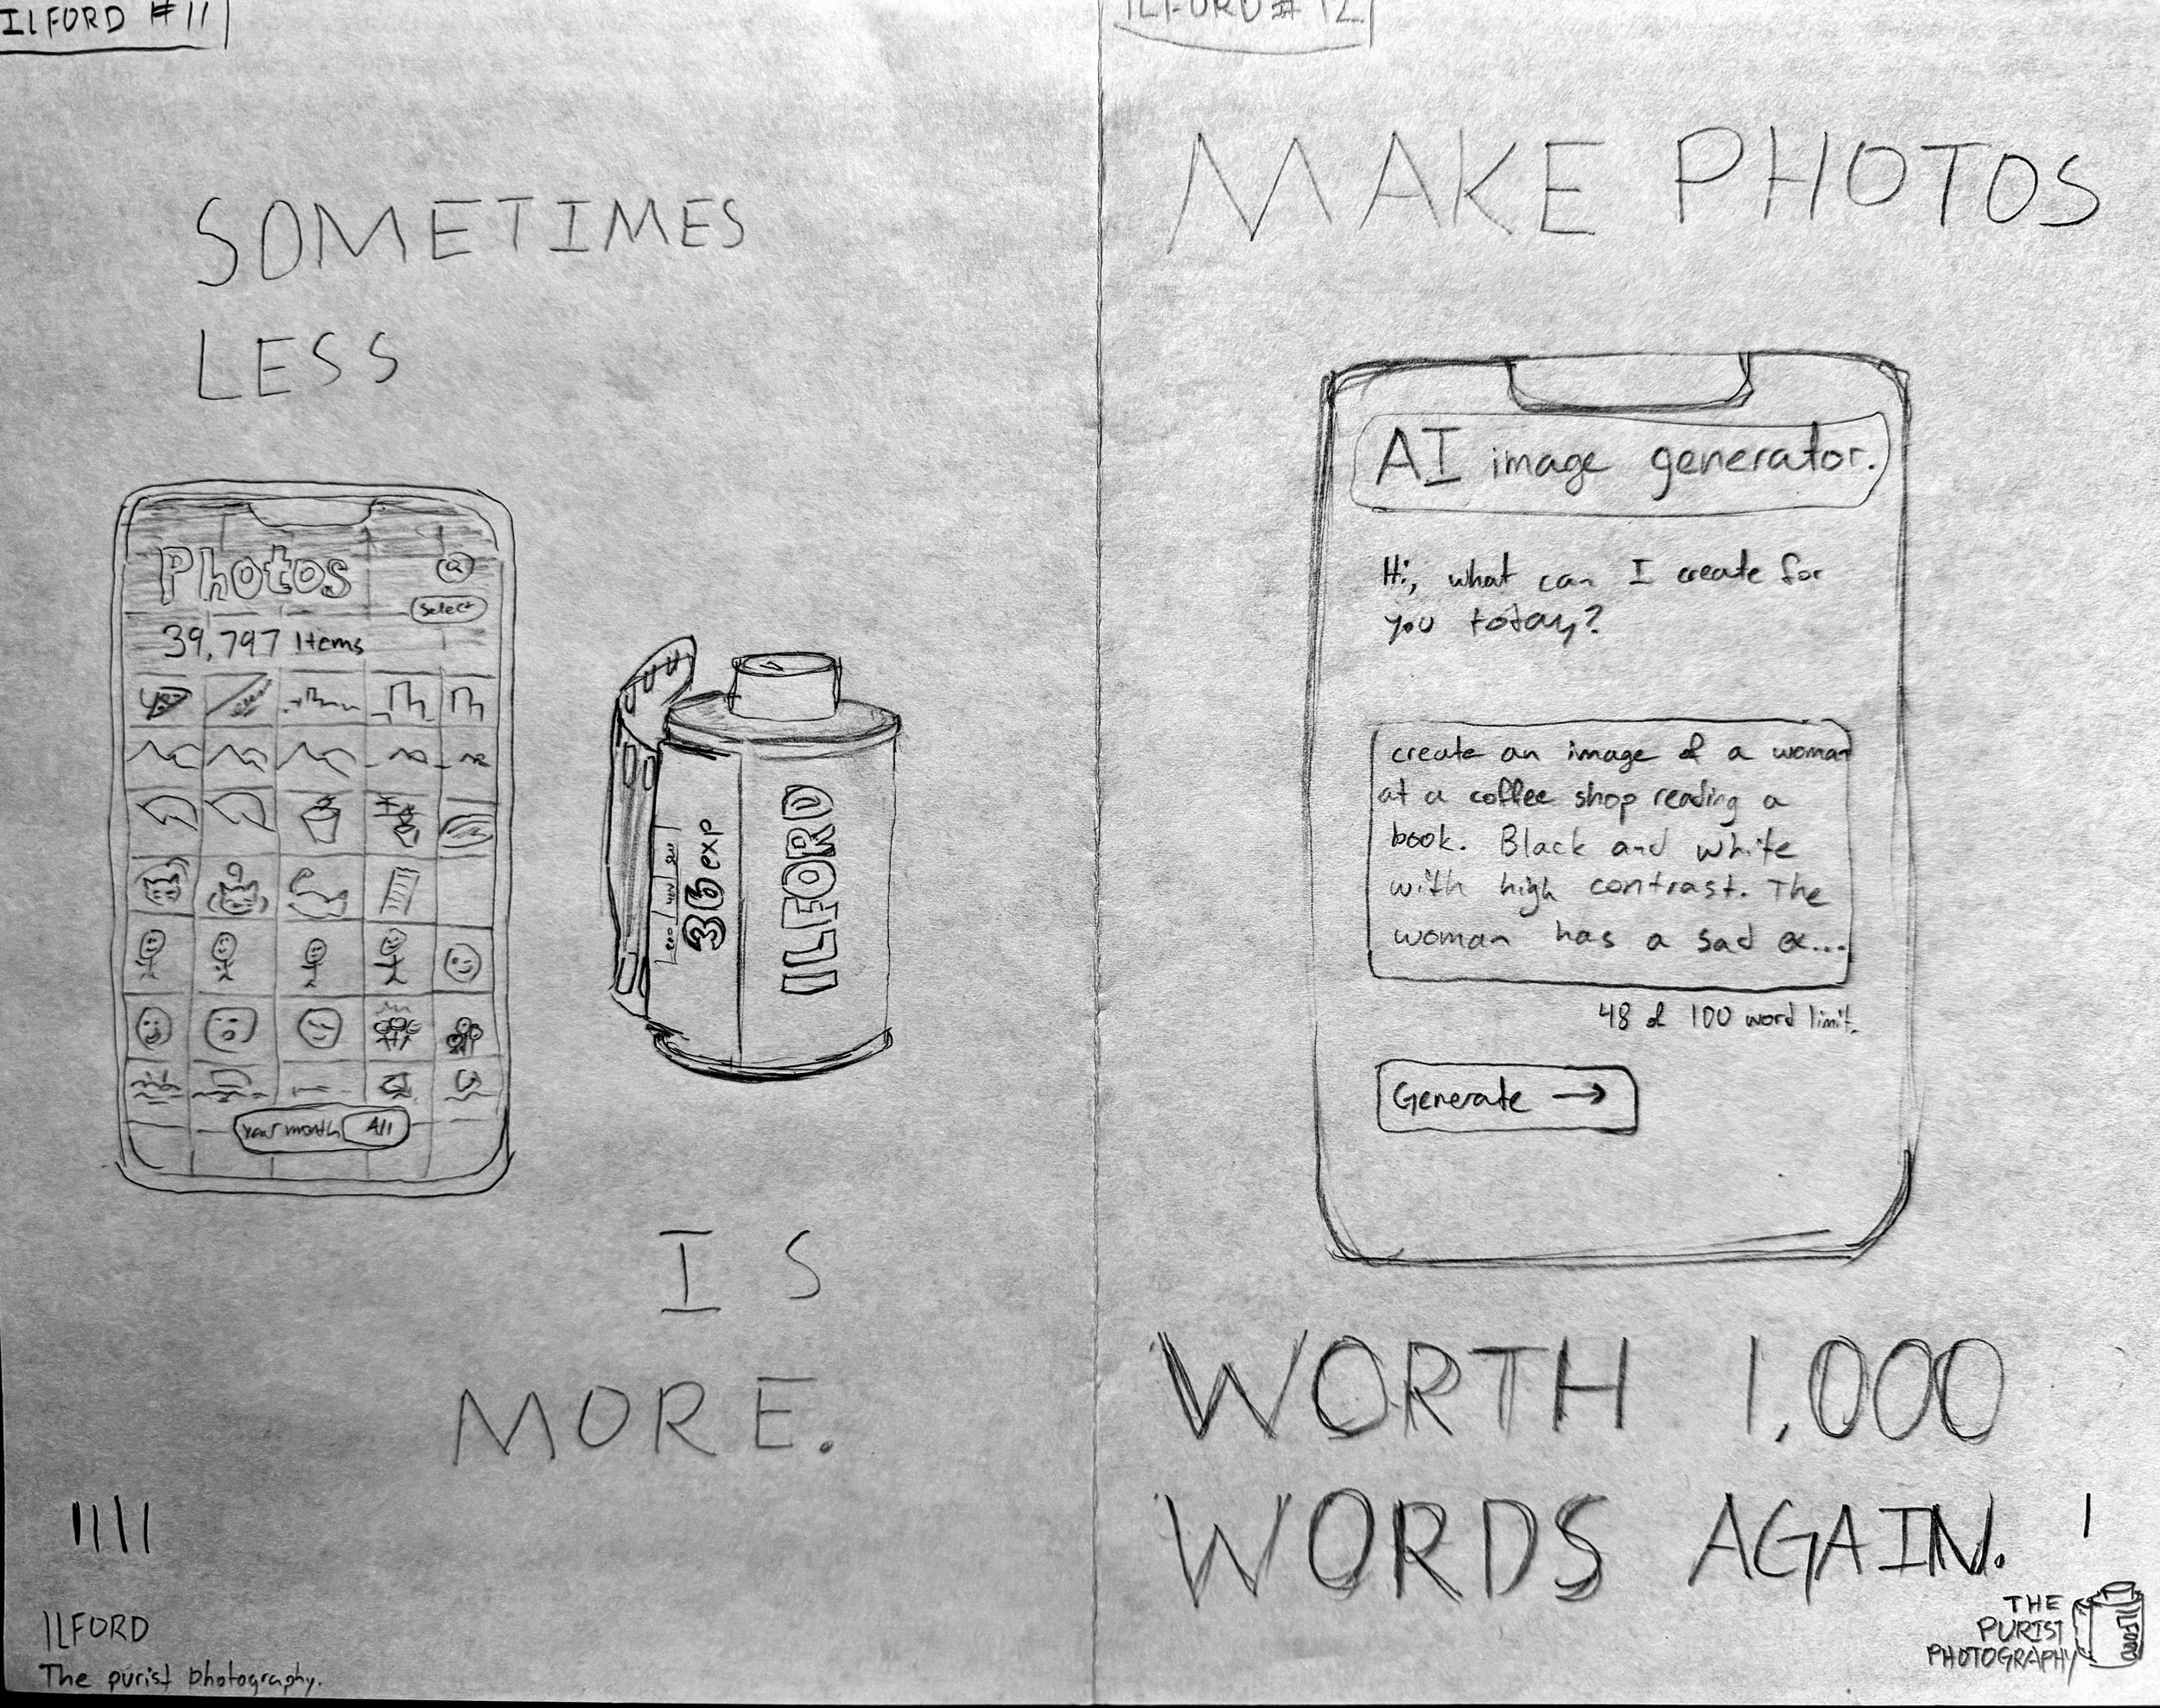 ILFORD #11
SOMETIMES
LESS
Photos
Select
39,797 Items
36 exp
ILFORD
Year month All
IS
MORE.
ILFORD
The purist photography.
ILFORD #12
MAKE PHOTOS
AI image generator.
Hi, what can I create for
you today?
create an image of a woman
at a coffee shop reading a
book. Black and white
with high contrast. The
woman has a sad ex...
48 of 100 word limit.
Generate →
WORTH 1,000
WORDS AGAIN.
THE
PURIST
PHOTOGRAPHY
ILFORD